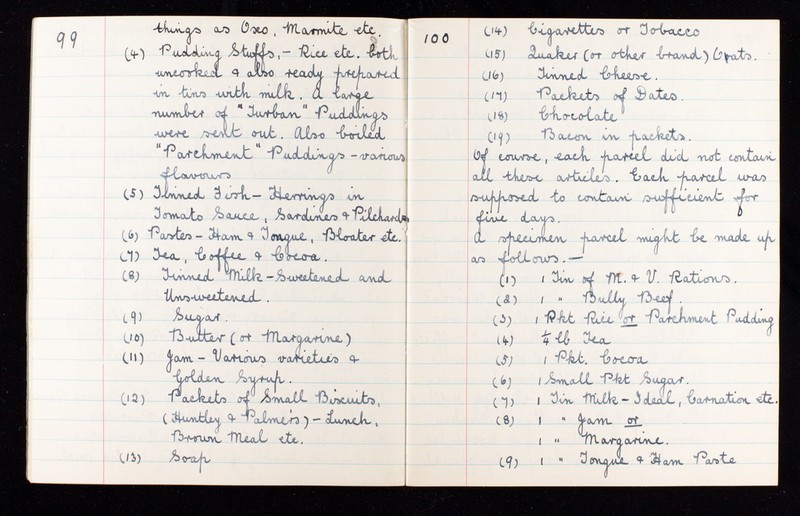 99
things as Oxo, Marmite etc.
(4) Pudding Stuffs, - Rice etc. both
uncooked & also ready prepared
in tins with milk. A large
number of "Turban" Puddings
were sent out. Also boiled
"Parchment" Puddings - various
flavours
(5) Tinned Fish - Herrings in
Tomato Sauce, Sardines & Pilchards
(6) Pastes - Ham & Tongue, Bloater etc.
(7) Tea, Coffee & Cocoa.
(8) Tinned Milk - Sweetened and
Unsweetened.
(9) Sugar.
(10) Butter (or Margarine)
(11) Jam - Various varieties &
Golden Syrup.
(12) Packets of Small Biscuits,
(Huntley & Palmers) - Lunch,
Brown Meal etc.
(13) Soap
100
(14) Cigarettes or Tobacco
(15) Quaker (or other brand) Oats.
(16) Tinned Cheese.
(17) Packets of Dates.
(18) Chocolate
(19) Bacon in packets.
Of course, each parcel did not contain
all these articles. Each parcel was
supposed to contain sufficient for
five days.
A specimen parcel might be made up
as follows. -
(1) 1 Tin of M. & V. Rations.
(2) 1 " Bully Beef.
(3) 1 Pkt Rice or Parchment Pudding
(4) ¼ lb Tea
(5) 1 Pkt. Cocoa
(6) 1 Small Pkt Sugar.
(7) 1 Tin Milk - Ideal, Carnation etc.
(8) 1 " Jam or
1 " Margarine.
(9) 1 " Tongue & Ham Paste